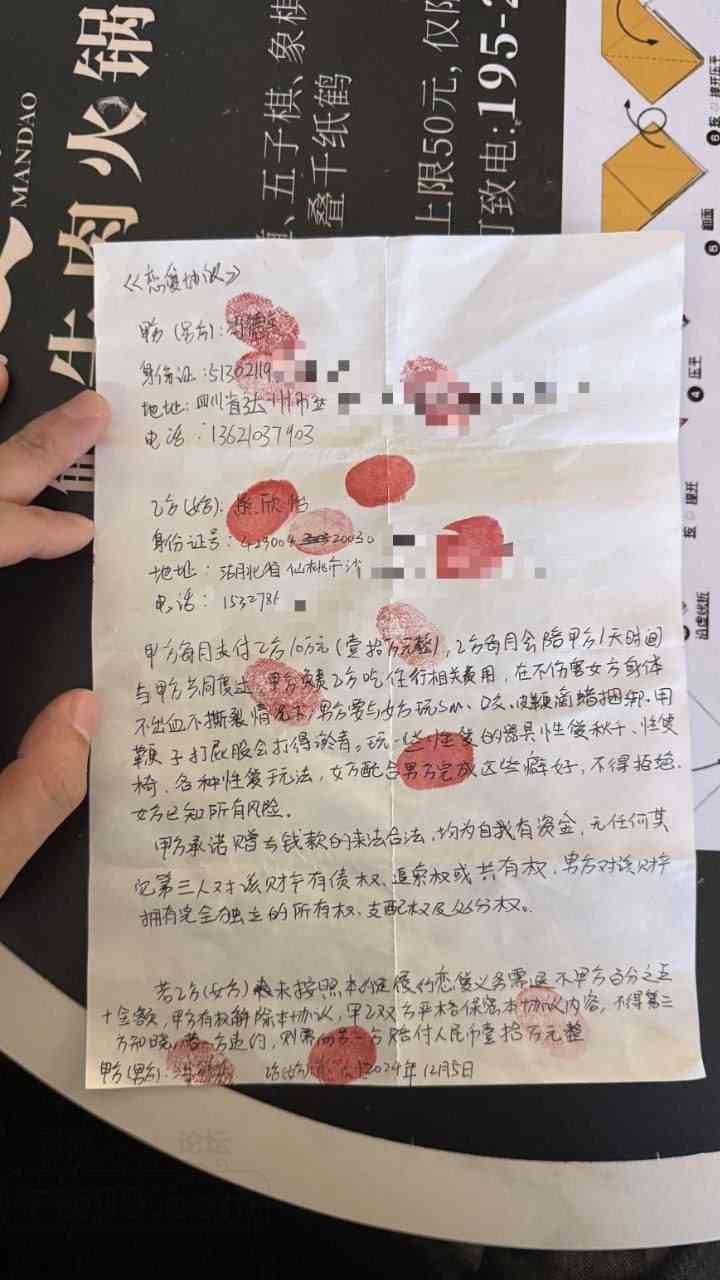 MANDAO
牛肉火锅
五子棋、象棋
叠千纸鹤
上限50元,仅限
丁致电:195-2
《恋爱协议》
甲方(男方):
身份证:51302119
地址:四川省达州市
电话:13621037903
乙方(女方):欣怡
身份证号:20030
地址:湖北省仙桃市沙
电话:153278
甲方每月支付乙方10万元(壹拾万元整),乙方每月会陪甲方1天时间
与甲方共同度过,甲方负责乙方吃住行相关费用,在不伤害女方身体
不出血不撕裂情况下,男方要与女方玩sm、口交、皮鞭滴蜡捆绑、用
鞭子打屁股会打得淤青。玩一些性爱的器具性爱秋千、性爱
椅、各种性爱玩法,女方配合男方完成这些癖好,不得拒绝.
女方已知所有风险。
甲方承诺赠与钱款的来法合法,均为自我有资金,无任何其
它第三人对该财产有债权、追索权或共有权,男方对该财产
拥有完全独立的所有权、支配权及处分权。
若乙方(女方)未按照本约定履约恋爱义务需退还甲方百分之五
十金额,甲方有权解除本协议,甲乙双方严格保密本协议内容,不得第三
方知晓,若一方违约,则需向另一方赔付人民币壹拾万元整
甲方(男方):
乙方(女方): 2024年12月5日
论坛
99.com